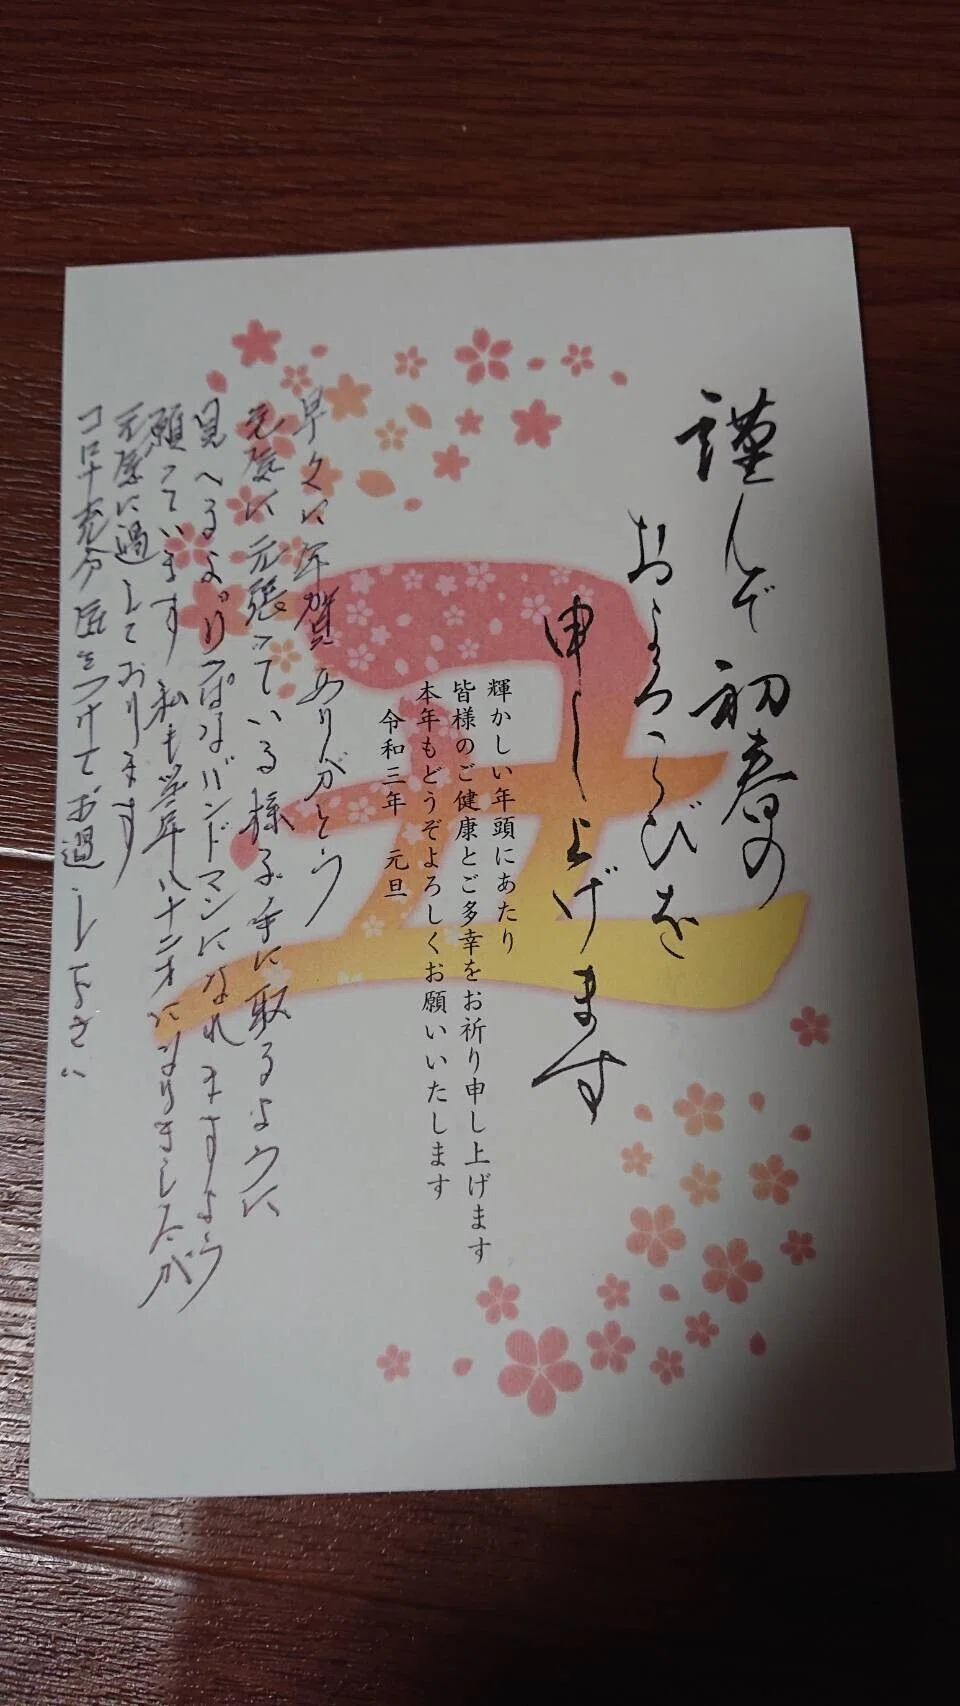 謹んで初春の
おようこびを
申し上げます
丑
輝かしい年頭にあたり
皆様のご健康とご多幸をお祈り申し上げます
本年もどうぞよろしくお願いいたします
令和三年 元旦
早々に年賀ありがとう
元気に元張っている様子手に取るように
見へるよ りっぱなバンドマンになれますよう
願っています 私も当年八十二才になりましたが
元気に過しております
コロナ充分気をつけてお過し下さい